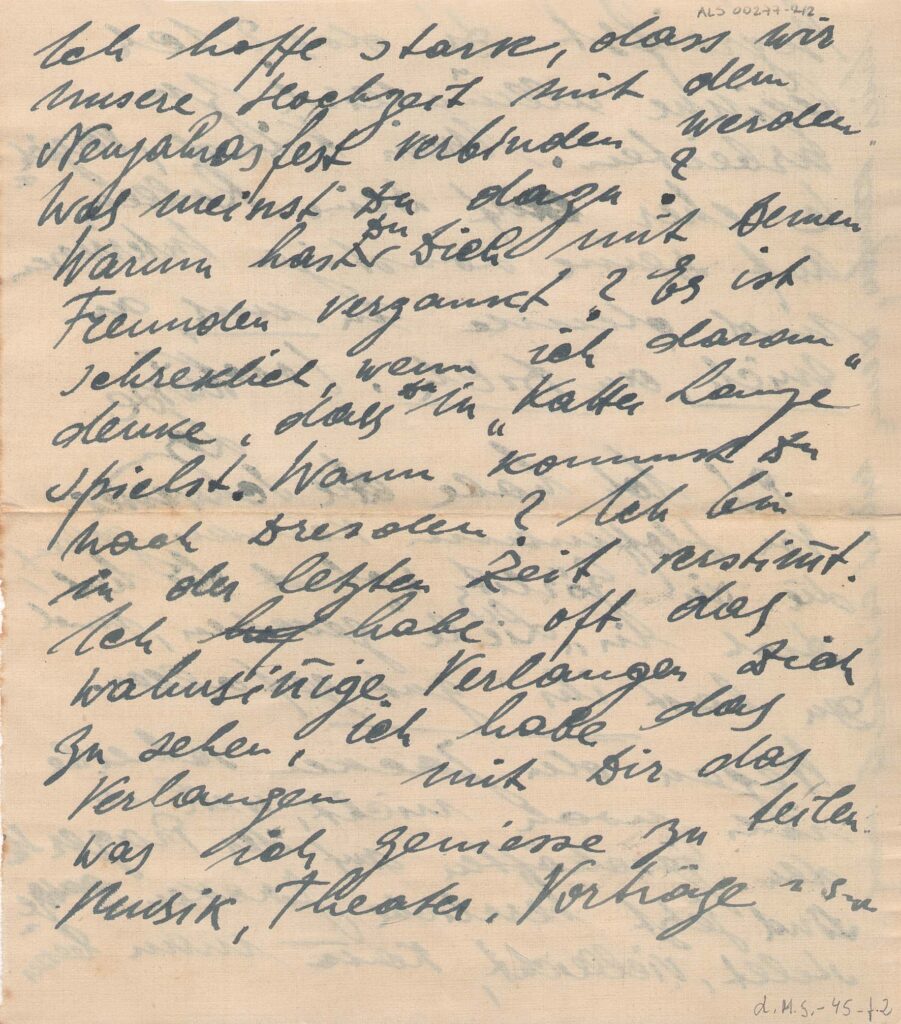 ALS 00277-2/2
Ich hoffe stark, dass wir
unsere Hochzeit mit dem
Neujahrsfest verbinden werden.
Was meinst Du dazu?
Warum hast Du Dich mit Deinen
Freunden verzankt? Es ist
schreklich, wenn ich daran
denke, dass Du in „Kalter Lange"
spielst. Wann kommst Du
nach Dresden? Ich bin
in der letzten Zeit verstim̄t.
Ich habe oft das
wahnsin̄ige Verlangen Dich
zu sehen, ich habe das
Verlangen mit Dir das
was ich geniesse zu teilen.
Musik, Theater, Vorträge
L.M.S.-45-f.2